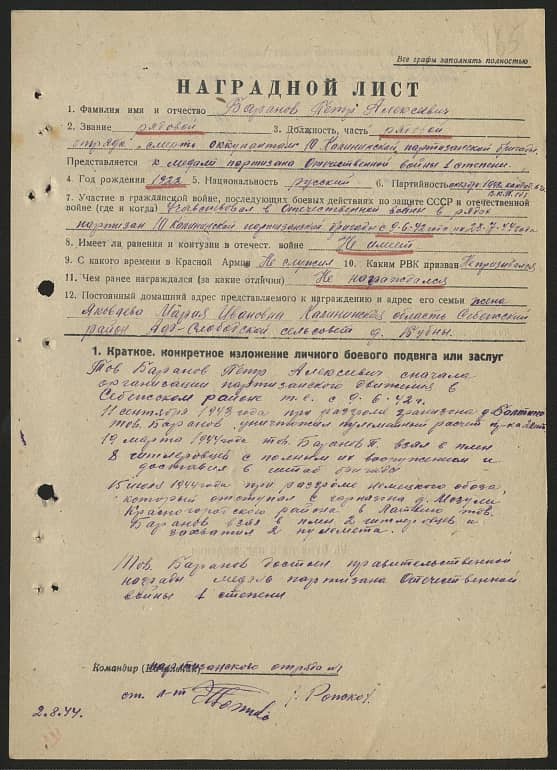 165
Все графы заполнять полностью
НАГРАДНОЙ ЛИСТ
1. Фамилия имя и отчество Баранов Петр Алексеевич
2. Звание рядовой 3. Должность, часть рядовой
отряда "смерть оккупантам" III Калининской партизанской бригады
Представляется к медали партизана Отечественной войны 1 степени.
4. Год рождения 1923 5. Национальность русский 6. Партийность
7. Участие в гражданской войне, последующих боевых действиях по защите СССР и отечественной
войне (где и когда) Участвовал в Отечественной войне в рядах
партизан III Калининской партизанской бригады с 9-6-42 года по 23-7-44 года
8. Имеет ли ранения и контузии в отечест. войне Не имеет
9. С какого времени в Красной Армии Не служил 10. Каким РВК призван Не призывался
11. Чем ранее награждался (за какие отличия) Не награждался
12. Постоянный домашний адрес представляемого к награждению и адрес его семьи жена
Яковлева Мария Ивановна Калининская область Себежский
район Аду-Слободской сельсовет д. Бубны.
1. Краткое, конкретное изложение личного боевого подвига или заслуг
Тов Баранов Петр Алексеевич с начала
организации партизанского движения в
Себежском районе т.е. с 9.6.42г.
11 сентября 1943 года при разгроме гранизона д.
тов. Баранов уничтожил пулеметный расчет
19 марта 1944 года тов. Баранов П. взял в плен
8 гитлеровцев с полным их вооружением и
доставил в штаб бригады
15 июля 1944 года при разгроме немецкого обоза,
который отступал с гарнизона д. Мозули
Красногородского района в Латвию тов.
Баранов взял в плен 2 гитлеровцев и
захватил 2 пулемета.
Тов. Баранов достоин правительственной
награды медаль партизана Отечественной
войны 1 степени
Командир партизанского отряда
ст. л-т
2.8.44.